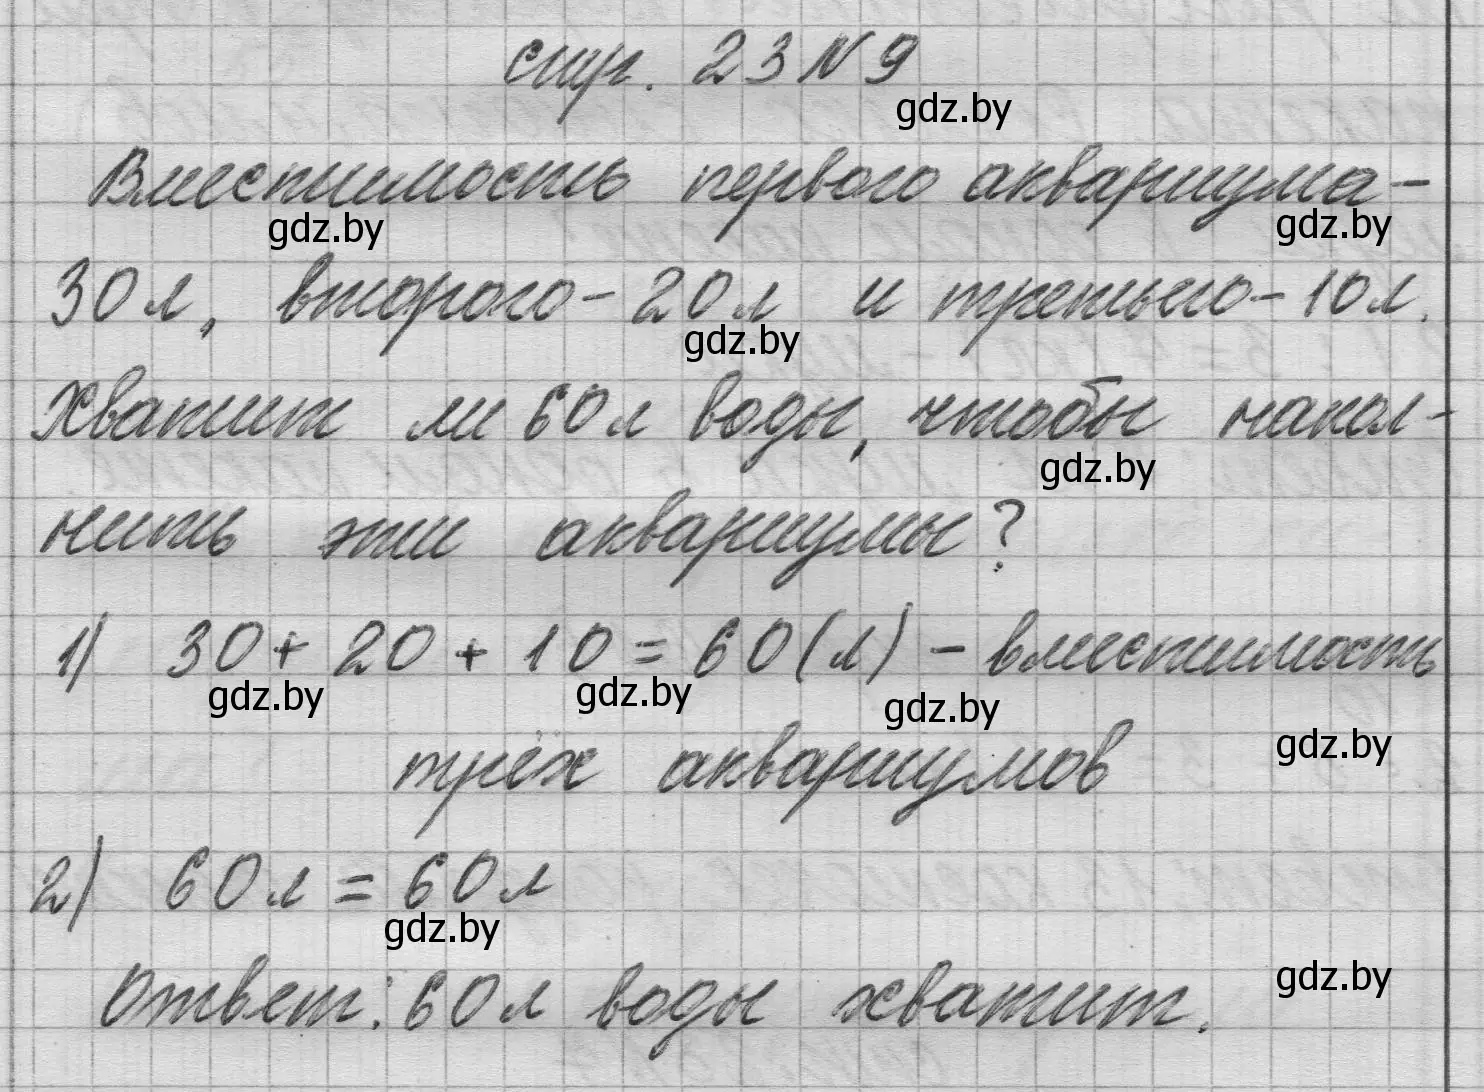 стр. 23 N 9
gdz.by
Вместимость первого аквариума-
gdz.by gdz.by
30 л, второго - 20 л и третьего - 10 л.
gdz.by
Хватит ли 60 л воды, чтобы напол-
gdz.by
нить эти аквариумы?
1) 30 + 20 + 10 = 60 (л) - вместимость
gdz.by gdz.by gdz.by
трёх аквариумов
gdz.by
2) 60 л = 60 л
gdz.by
Ответ: 60 л воды хватит.
gdz.by